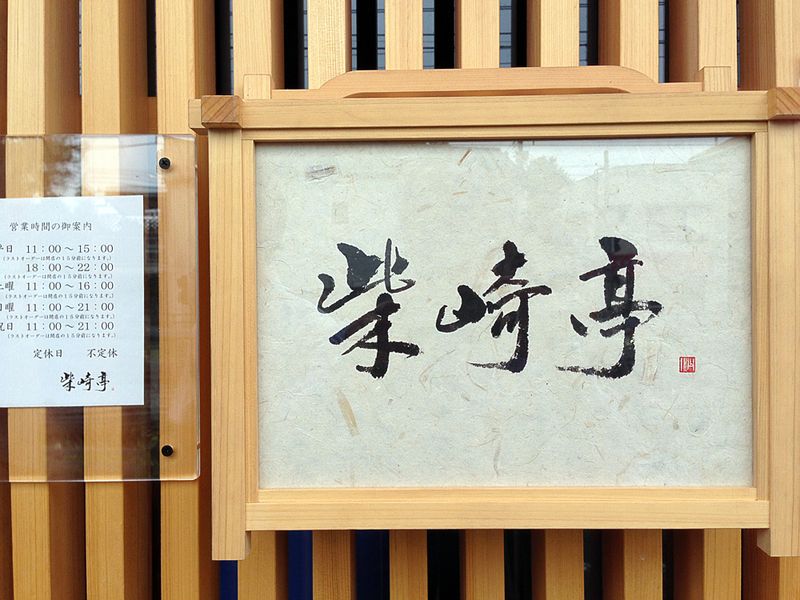 営業時間の御案内
日 11:00～15:00
(ラストオーダーは閉店の15分前になります。)
18:00～22:00
(ラストオーダーは閉店の15分前になります。)
曜 11:00～16:00
(ラストオーダーは閉店の15分前になります。)
日曜 11:00～21:00
(ラストオーダーは閉店の15分前になります。)
祝日 11:00～21:00
(ラストオーダーは閉店の15分前になります。)
定休日 不定休
柴崎亭
柴崎亭